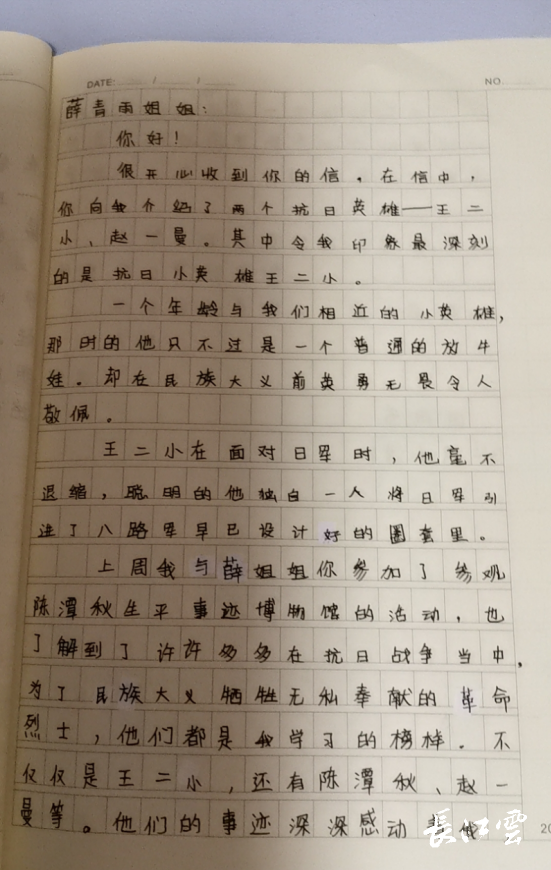 DATE: / /
NO.
薛青雨姐姐：
你好！
很开心收到你的信。在信中，
你向我介绍了两个抗日英雄——王二
小、赵一曼。其中令我印象最深刻
的是抗日小英雄王二小。
一个年龄与我们相近的小英雄，
那时的他只不过是一个普通的放牛
娃。却在民族大义前英勇无畏令人
敬佩。
王二小在面对日军时，他毫不
退缩，聪明的他独自一人将日军引
进了八路军早已设计好的圈套里。
上周我与薛姐姐你参加了参观
陈潭秋生平事迹博物馆的活动，也
了解到了许许多多在抗日战争当中，
为了民族大义牺牲无私奉献的革命
烈士，他们都是我学习的榜样。不
仅仅是王二小，还有陈潭秋、赵一
曼等。他们的事迹深深感动着我
長江雲
20